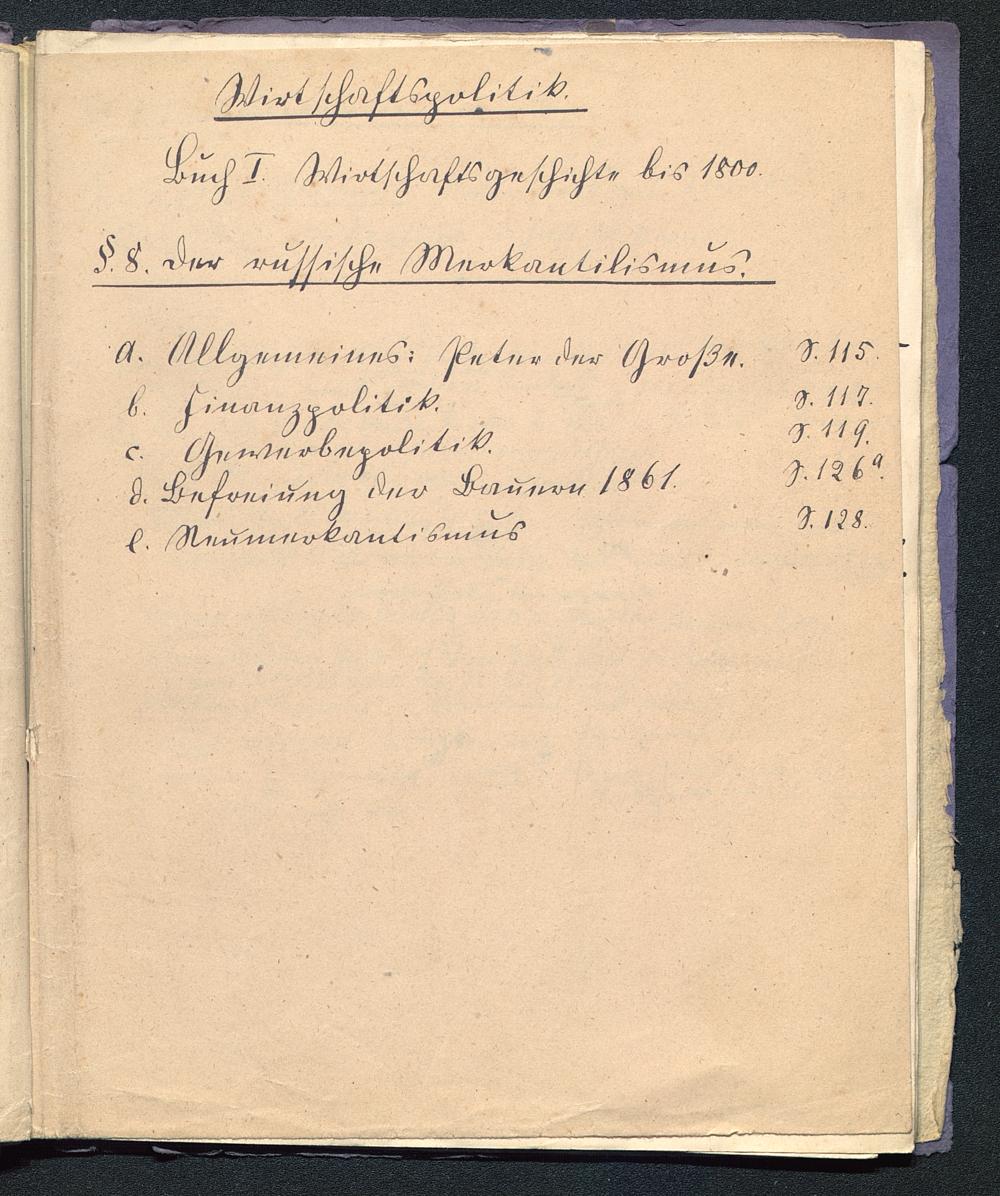 Wirtschaftspolitik.
Buch I. Wirtschaftsgeschichte bis 1800.
§. 8. Der russische Merkantilismus.
a. Allgemeines: Peter der Große. S. 115.
b. Finanzpolitik. S. 117.
c. Gewerbepolitik. S. 119.
d. Befreiung der Bauern 1861. S. 126a.
e. Neumerkantismus S. 128.